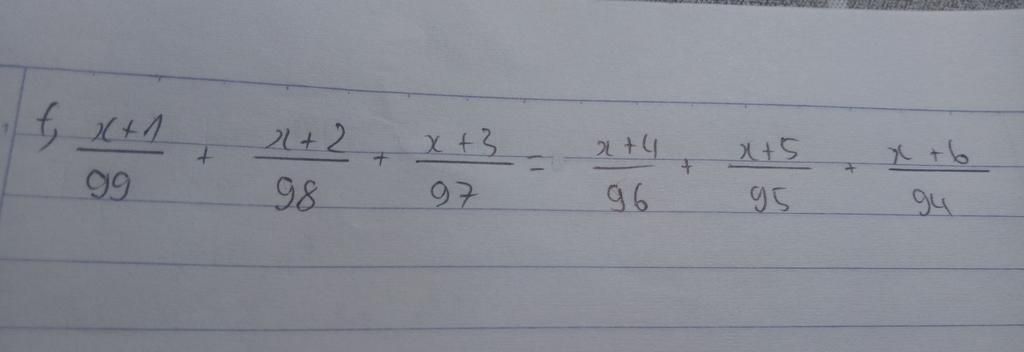 f, x+1/99 + x+2/98 + x+3/97 = x+4/96 + x+5/95 + x+6/94